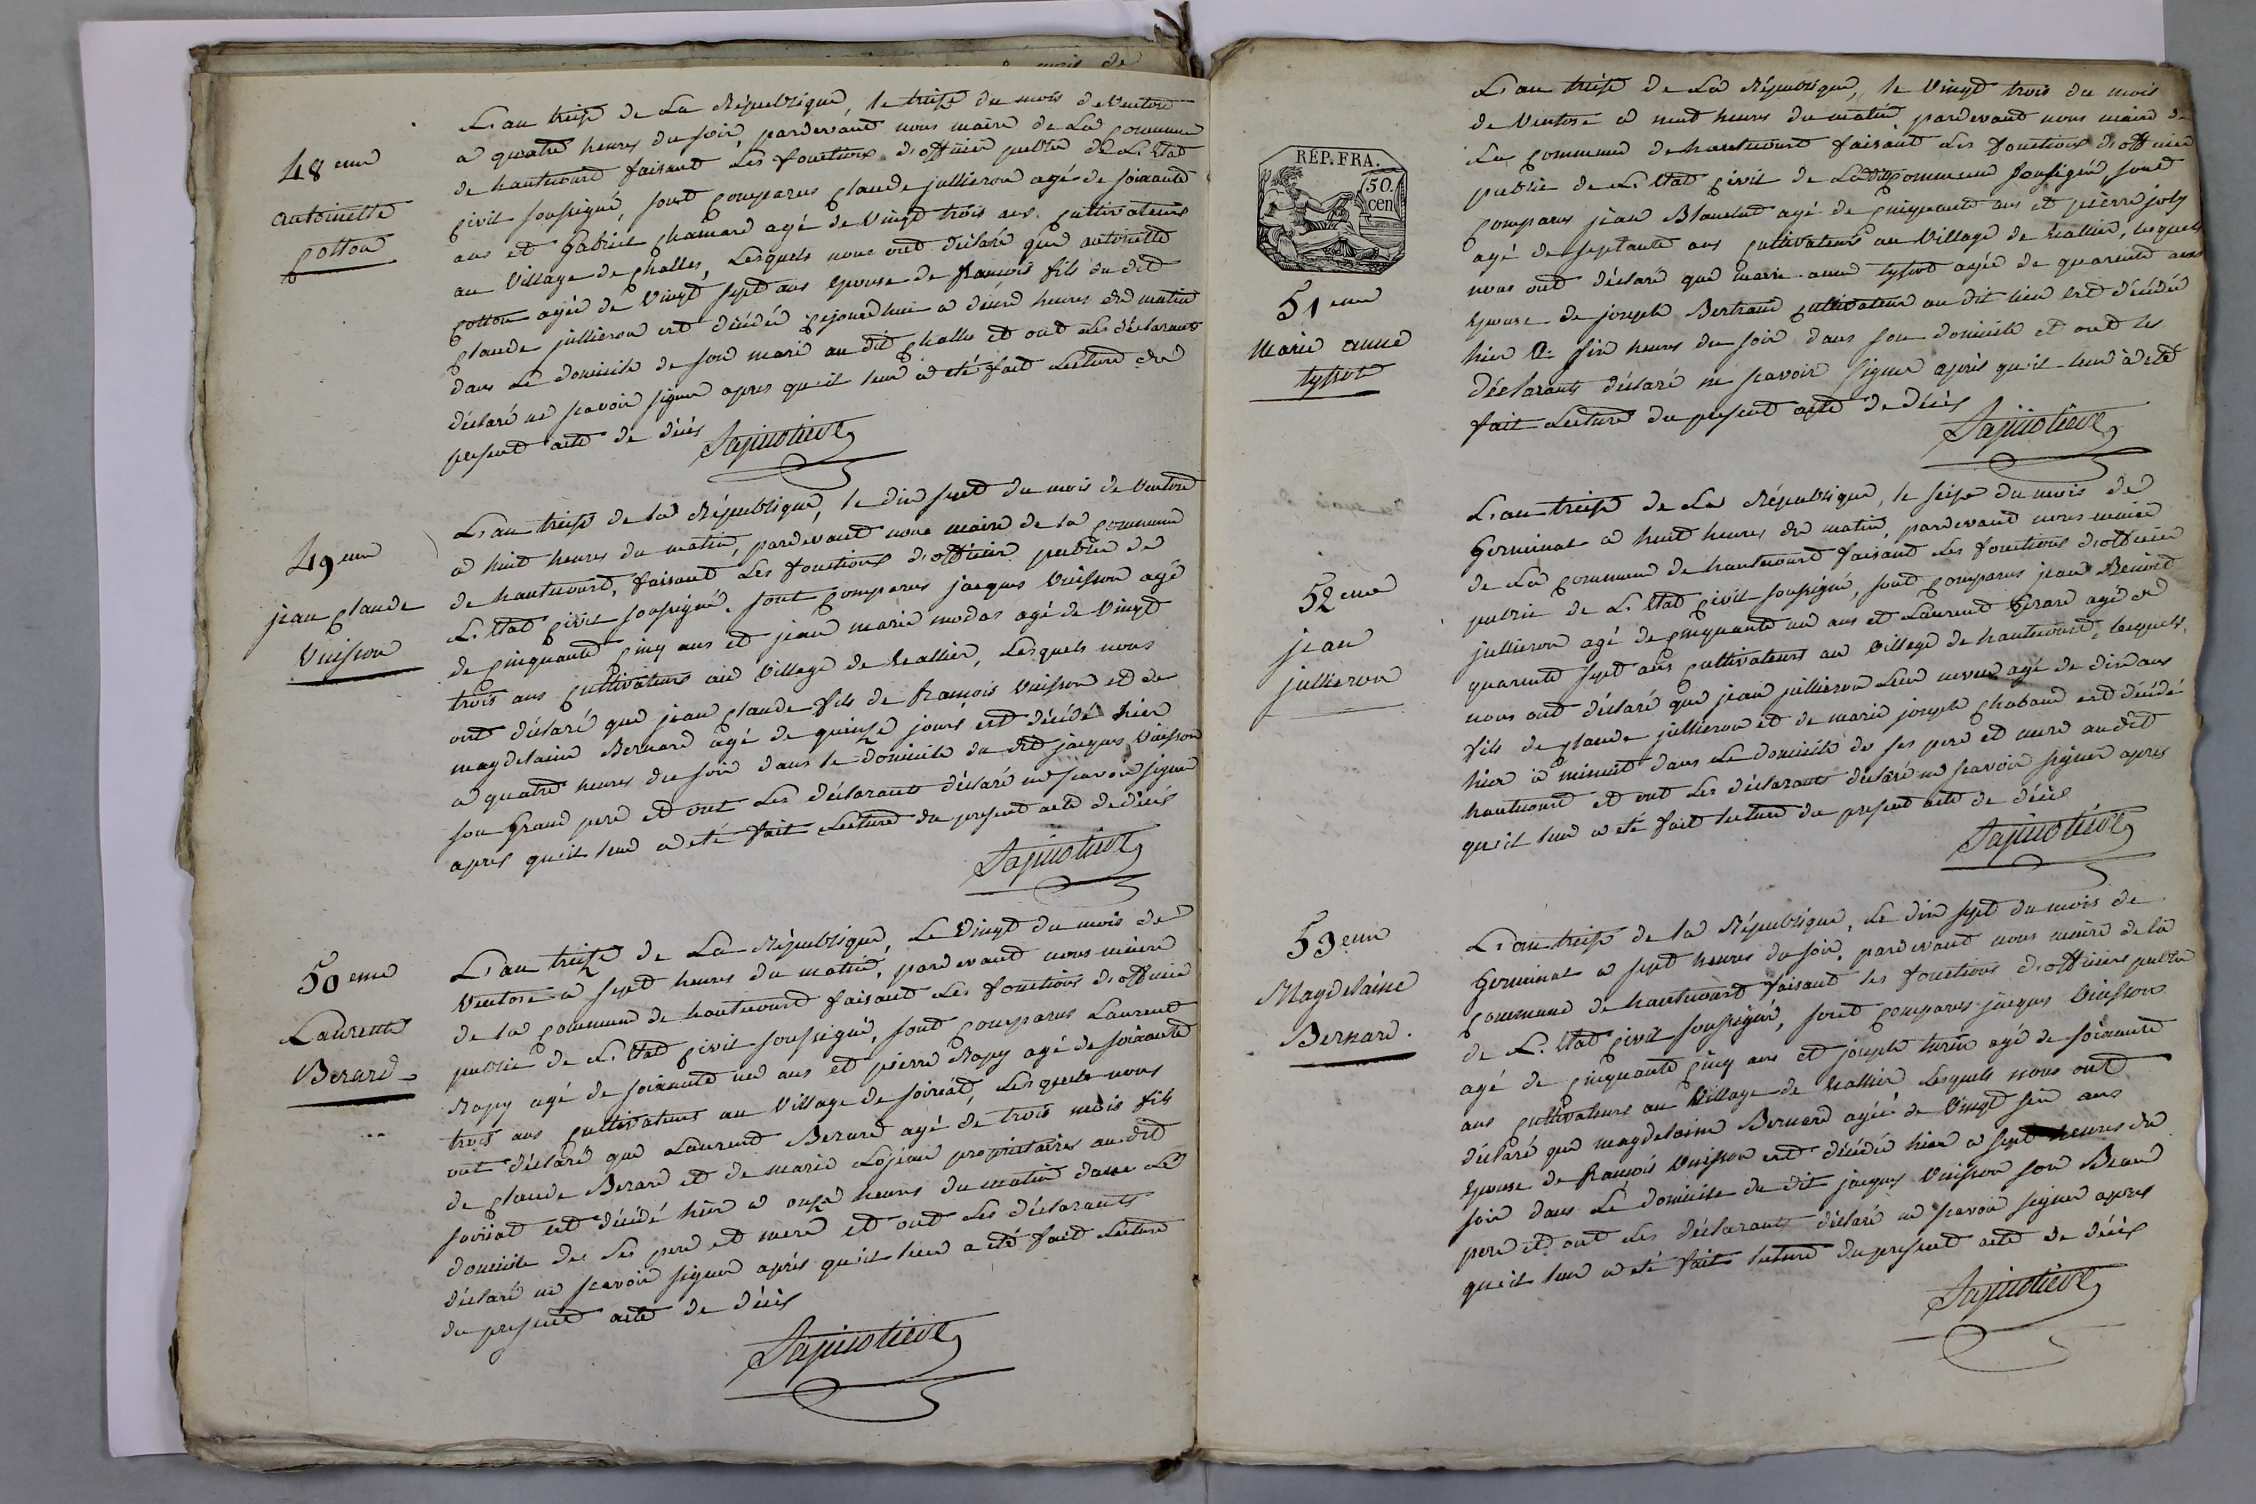 48 eme
antoinette
cotton
L'an treise de La République, le treise du mois de Ventose
a quatre heures du soir, pardevant nous maire de La commune
de hautecourt faisant Les fonctions d'officier public de L'Etat
civil soussigné, sont comparus claude jullieron agé de soixante
ans et gabriel chanard agé de Vingt trois ans cultivateurs
au Village de challes, Lesquels nous ont déclaré que antoinette
cotton agée de Vingt sept ans Epouse de francois fils du dit
claude jullieron est décédée cejourdhui a dix heures du matin
dans Le domicile de son mari au dit challes et ont Les déclarants
déclaré ne scavoir signer apres qu'il leur a été fait Lecture du
present acte de décès
49 eme
jean claude
Vuisson
L'an treise de la République, le dix sept du mois de Ventose
a huit heures du matin, pardevant nous maire de la commune
de hautecourt, faisant Les fonctions d'officier public de
L'Etat civil soussigné. sont comparus jacques Vuisson agé
de cinquante cinq ans et jean marie modas agé de Vingt
trois ans cultivateurs au Village de Uallier, Lesquels nous
ont déclaré que jean claude fils de francois Vuisson et de
magdelaine Bernard agé de quinze jours est décédé hier
a quatre heures du soir dans le domicile du dit jacques Vuisson
son Grand pere et ont Les déclarants déclaré ne scavoir signer
apres qu'il leur a été fait Lecture du present acte de décès
50 eme
Laurent
Berard
L'an treize de La République, Le Vingt du mois de
Ventose a sept heures du matin, pardevant nous maire
de la commune de hautecourt faisant Les fonctions d'officier
public de L'Etat civil soussigné, sont comparus Laurent
Rapy agé de soixante un ans et pierre Rapy agé de soixante
trois ans cultivateurs au Village de soiriat, Lesquels nous
ont déclaré que Laurent Berard agé de trois mois fils
de claude Berard et de marie Lojean propriétaires au dit
soiriat est décédé hier a onze heures du matin dans Le
domicile de ses pere et mere et ont Les déclarants
déclaré ne scavoir signer après qu'il leur a été fait Lecture
du present acte de décès
RÉP. FRA.
50.
cen
51 eme
Marie anne
tyssot
L'an treise de La République, le Vingt trois du mois
de Ventose a neuf heures du matin pardevant nous maire de
La commune de hautecourt faisant Les fonctions d'officier
public de L'Etat civil de Ladite commune soussigné, sont
comparus jean Blanchet agé de cinquante ans et pierre joly
agé de septante ans cultivateurs au Village de Uallier, lesquels
nous ont déclaré que marie anne tyssot agée de quarante ans
Epouse de joseph Bertrand cultivateur au dit lieu est décédée
hier a six heures du soir dans son domicile et ont les
déclarants déclaré ne scavoir signer après qu'il leur a été
fait Lecture du present acte de décès
52 eme
jean
jullieron
L'an treise de La République, le seise du mois de
Germinal a huit heures du matin, pardevant nous maire
de La commune de hautecourt faisant Les fonctions d'officier
public de L'Etat civil soussigné, sont comparus jean Benoit
jullieron agé de cinquante un ans et Laurent Gerard agé de
quarante sept ans cultivateurs au Village de hautecourt, lesquels
nous ont déclaré que jean jullieron Leur neveu agé de dix ans
fils de claude jullieron et de marie joseph chaband est décédé
hier a minuit dans Le domicile de ses pere et mere au dit
hautecourt et ont Les déclarants déclaré ne scavoir signer apres
qu'il leur a été fait lecture du present acte de décès
53 eme
Magdelaine
Bernard.
L'an treise de la République, Le dix sept du mois de
Germinal a sept heures du soir, pardevant nous maire de la
commune de hautecourt faisant les fonctions d'officier public
de L'Etat civil soussigné, sont comparus jacques Vuisson
agé de cinquante cinq ans et joseph turin agé de soixante
ans cultivateurs au Village de Uallier Lesquels nous ont
déclaré que magdelaine Bernard agée de Vingt six ans
Epouse de francois Vuisson est décédée hier a sept heures du
soir dans Le domicile du dit jacques Vuisson son Beau
pere et ont Les déclarants déclaré ne scavoir signer apres
qu'il leur a été fait lecture du present acte de décès